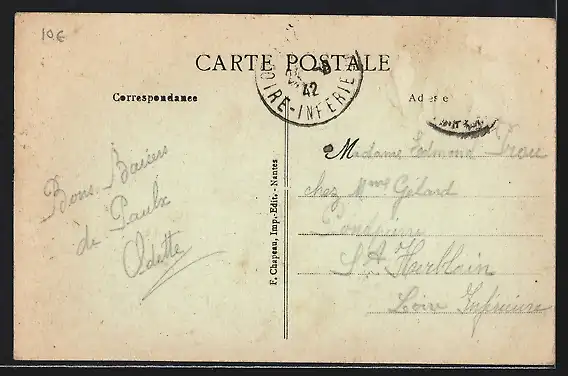 10€
CARTE POSTALE
Correspondance
Adresse
42
LOIRE-INFERIEURE
Bons Baisers
de Paulx
Odette
F. Chapeau, Imp.-Edit. - Nantes
Madame Edmond
chez Mme Gélard
St Herblain
Loire Inférieure